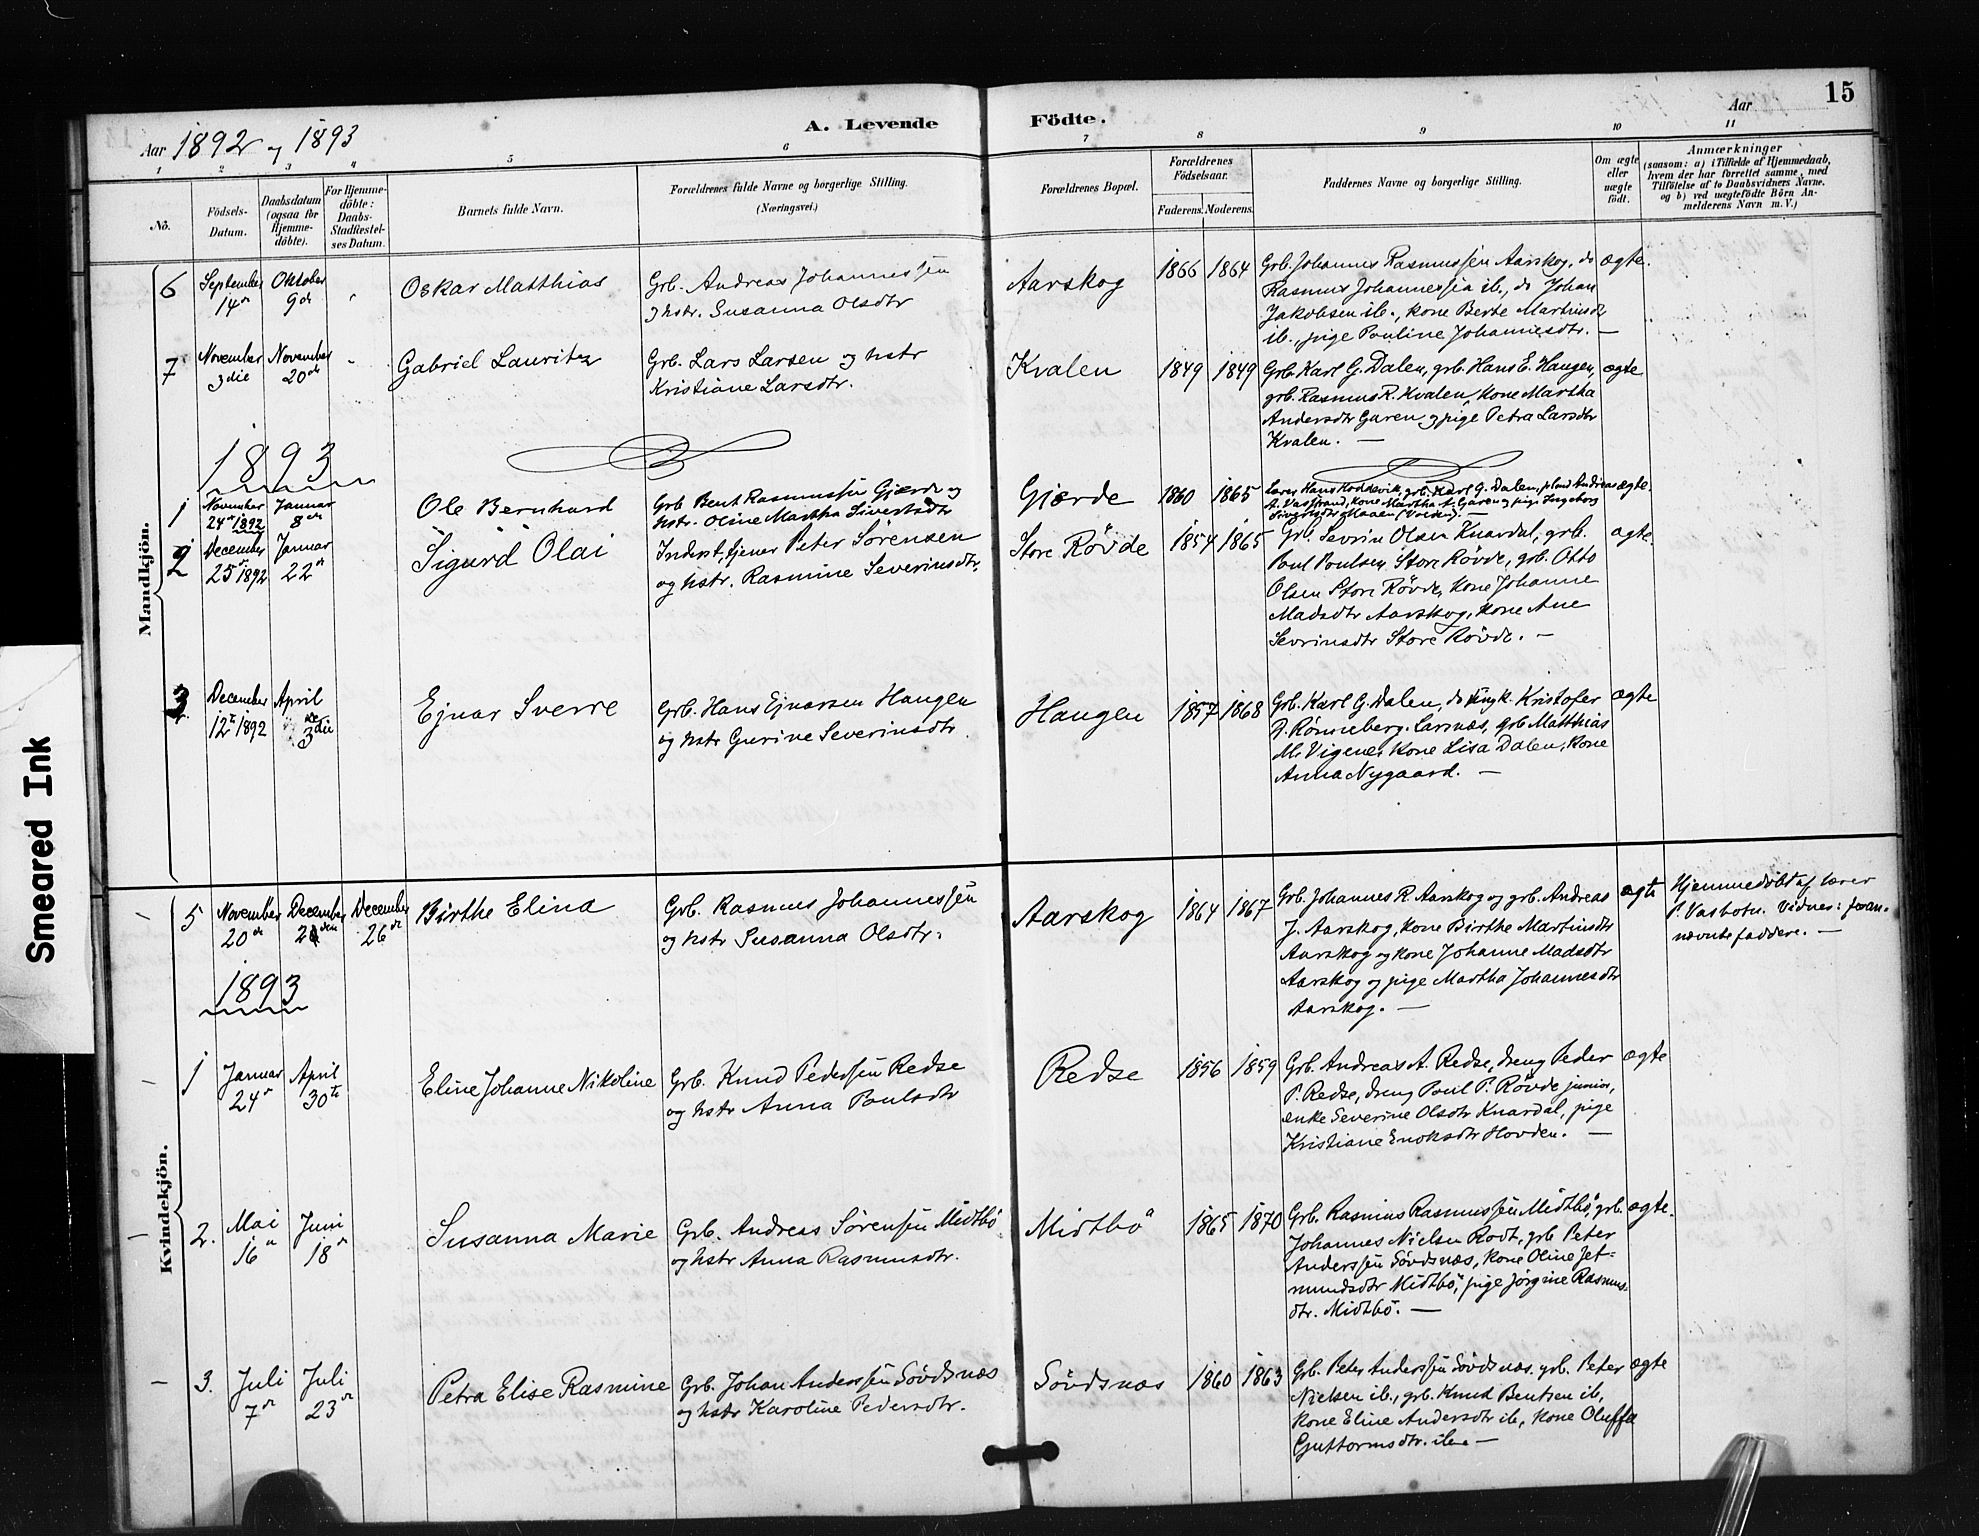 15
Aar 1892 og 1893
A. Levende Födte.
Aar
1 2 3 4 5 6 7 8 9 10 11
Nö.
Födsels-Datum.
Daabsdatum (ogsaa for Hjemme-döbte).
For Hjemme-döbte: Daabs-Stadfæstel-ses Datum.
Barnets fulde Navn.
Forældrenes fulde Navne og borgerlige Stilling.
(Næringsvei.)
Forældrenes Bopæl.
Forældrenes Födselsaar.
Faderens. Moderens.
Faddernes Navne og borgerlige Stilling.
Om ægte eller uægte födt.
Anmærkninger
(saasom: a) i Tilfælde af Hjemmedaab,
hvem der har forrettet samme, med
Tilföielse af to Daabsvidners Navne.
og b) ved uægtefödte Börn An-
melderens Navn m. V.)
Mandkjön.
6 September 14de Oktober 9de
Oskar Matthias
Grb. Andreas Johannessen
og hstr. Susanna Olsdtr
Aarskog 1866 1864
Grb. Johannes Rasmussen Aarskog, do
Rasmus Johannessen ib., do Johan
Jakobsen ib., kone Berte Martinsdtr
ib., pige Pauline Johannesdtr. —
ægte.
7 November 3die November 20de
Gabriel Lauritz
Grb. Lars Larsen og hstr
Kristiane Larsdtr.
Kvalen 1849 1849
Grb. Karl G. Dalen, grb. Hans E. Haugen,
grb. Rasmus R. Kvalen, kone Martha
Andersdtr Garen og pige Petra Larsdtr
Kvalen. —
ægte
1893
1 November 24de 1892 Januar 8de
Ole Bernhard
Grb Bent Rasmussen Gjærde og
hstr. Oline Martha Sivertsdtr
Gjærde 1860 1865
Lærer Hans Koddevik, grb. Karl G. Dalen, Andreas
A. Vasstrand, kone Martha A. Garen og pige Ingeborg
Sivertsdtr Maaen (Volden). —
ægte.
2 December 25de 1892 Januar 22de
Sigurd Olai
Inderst, tjener Peter Sörensen
og hstr. Rasmine Severinsdtr.
Store Rövde 1854 1865
Grb. Sevrin Olsen Knardal, grb.
Poul Poulsen Store Rövde, grb. Otto
Olsen Store Rövde, kone Johanne
Madsdtr Aarskog, kone Ane
Sevrinsdtr Store Rövde. —
ægte.
3 December 12te 1892 April 3die
Ejnar Sverre
Grb. Hans Ejnarsen Haugen
og hstr Gurine Severinsdtr.
Haugen 1857 1868
Grb. Karl G. Dalen, do Kristofer
R. Rönneberg. Larsnæs, grb Matthias
M. Vigene, kone Lisa Dalen, kone
Anna Nygaard. —
ægte
Kvindekjön.
5 November 20de December December 26de
Birthe Elina
Grb. Rasmus Johannessen
og hstr Susanna Olsdtr.
Aarskog 1864 1867
Grb. Johannes R. Aarskog og grb. Andreas
J. Aarskog, kone Birthe Martinsdtr
Aarskog og kone Johanne Madsdtr
Aarskog og pige Martha Johannesdtr
Aarskog. —
ægte
Hjemmedöbt af lærer
P. Vasbotn. Vidner: foran-
nævnte faddere. —
1893
1 Januar 24de April 30te
Eline Johanne Nikoline
Grb. Knud Pedersen Redse
og hstr Anna Poulsdtr
Redse 1856 1859
Grb. Andreas A. Redse, dreng Peder
P. Redse, dreng Poul P. Rövde junior,
enke Severine Olsdtr Knardal, pige
Kristiane Enoksdtr Hovden. —
ægte
2. Mai 16de Juni 18de
Susanna Marie
Grb. Andreas Sörensen Midtbö
og hstr Anna Rasmusdtr.
Midtbö 1865 1870
Grb. Rasmus Rasmussen Midtbö, grb.
Johannes Nielsen Rodt, grb Peter
Anderssen Sövdsnæs, kone Oline Jet-
mundsdtr Midtbö, pige Jörgine Rasmus-
dtr. Midtbö. —
ægte.
3. Juli 7de Juli 23de
Petra Elise Rasmine
Grb. Johan Anderssen Sövdsnæs
og hstr Karoline Pedersdtr.
Sövdsnæs 1860 1863
Grb. Peter Anderssen Sövdsnæs, grb. Peter
Nielsen ib., grb. Knud Bentsen ib,
kone Eline Andersdtr ib, kone Oluffa
Guttormsdtr. ib. —
ægte
Smeared Ink